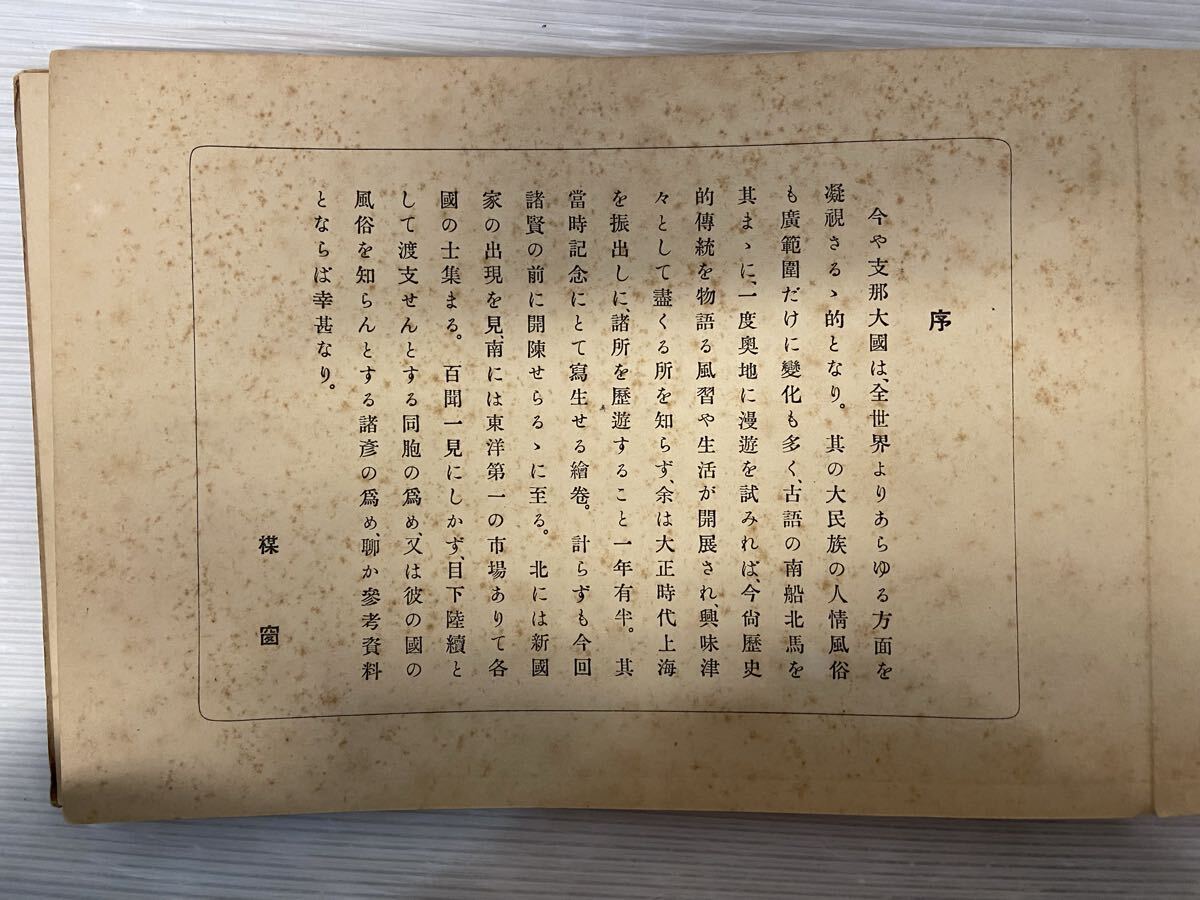 序
今や支那大國は、全世界よりあらゆる方面を
凝視さるゝ的となり。其の大民族の人情風俗
も廣範圍だけに變化も多く、古語の南船北馬を
其まゝに、一度奥地に漫遊を試みれば、今尙歷史
的傳統を物語る風習や生活が開展され、興味津
々として盡くる所を知らず、余は大正時代上海
を振出しに、諸所を歷遊すること一年有半。其
當時記念にとて寫生せる繪卷。計らずも今回
諸賢の前に開陳せらるゝに至る。北には新國
家の出現を見南には東洋第一の市場ありて各
國の士集まる。百聞一見にしかず、目下陸續と
して渡支せんとする同胞の爲め、又は彼の國の
風俗を知らんとする諸彦の爲め、聊か參考資料
とならば幸甚なり。
楳窗